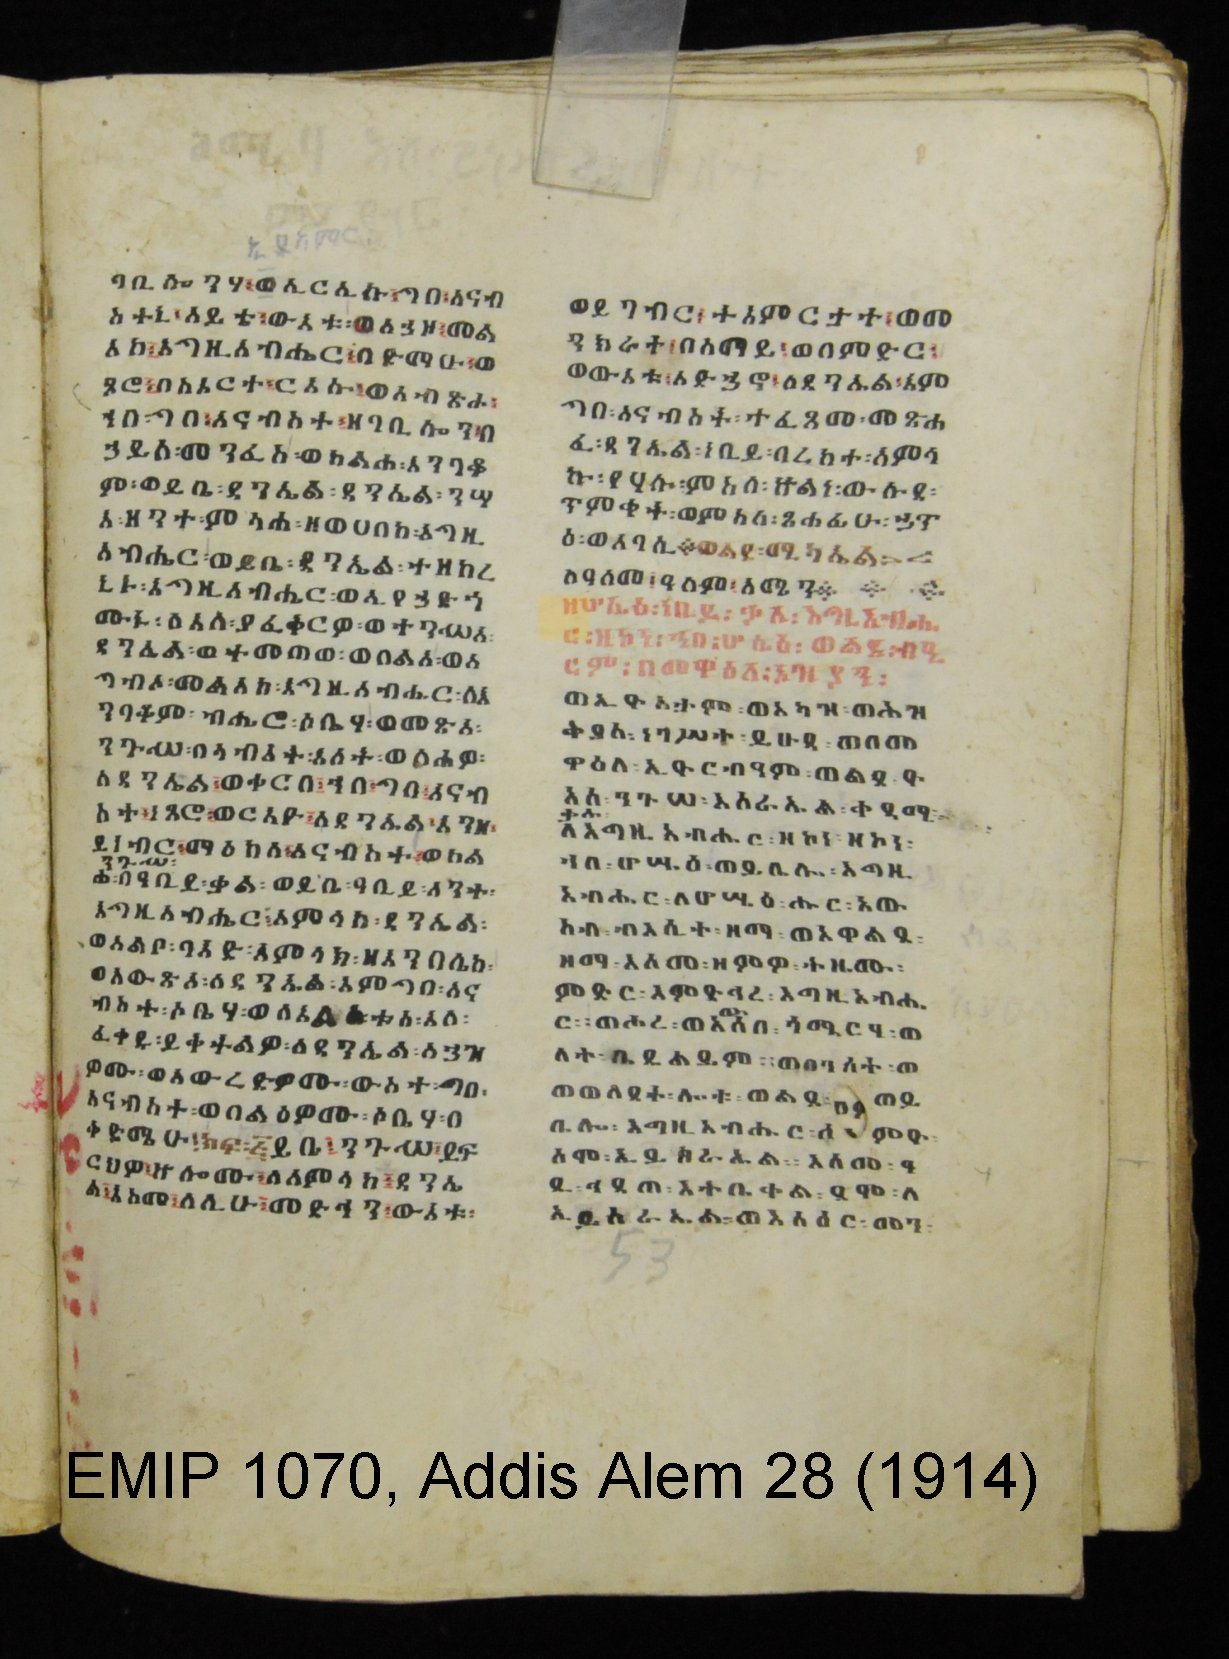 ባቢሎንሃ፡ወኢርኢኩ፡ግበ፡አናብ
አተኒ፡አይቴ፡ውእቱ፡ወአኃዘ፡መል
አከ፡እግዚአብሔር፡በድማሁ፡ወ
ጾሮ፡በአእርተ፡ርእሱ፡ወአብጽሖ፡
ኀበ፡ግበ፡አናብስተ፡ዘባቢሎን፡በ
ኃይለ፡መንፈስ፡ወከልሐ፡እንባቆ
ም፡ወይቤ፡ዳንኤል፡ዳንኤል፡ንሣ
እ፡ዘንተ፡ምሳሐ፡ዘወሀበከ፡እግዚ
አብሔር፡ወይቤ፡ዳንኤል፡ተዘከረ
ኒኑ፡እግዚአብሔር፡ወኢየኃድጎ
ሙኑ፡ለእለ፡ያፈቅርዎ፡ወተንሥአ፡
ዳንኤል፡ወተመጠወ፡ወበልዐ፡ወአ
ግብኦ፡መልአከ፡እግዚአብሔር፡ለእ
ንባቆም፡ብሔሮ፡ሶቤሃ፡ወመጽአ፡
ንጉሥ፡በሳብዕት፡ዕለት፡ወለሐዎ፡
ለዳንኤል፡ወቀርበ፡ኀበ፡ግበ፡አናብ
ስተ፡ነጸሮ፡ወርእዮ፡ለዳንኤል፡እንዘ፡
ይነብር፡ማዕከለ፡አናብስተ፡ወከል
ንጉሥ፡
ሐ፡በዓቢይ፡ቃል፡ወይቤ፡ዓቢይ፡አንተ፡
እግዚአብሔር፡አምላከ፡ዳንኤል፡
ወአልቦ፡ባእድ፡አምላክ፡ዘእንበሌከ፡
ወአውጽአ፡ለዳንኤል፡እምግበ፡አና
ብስተ፡ሶቤሃ፡ወለእልክቱሰ፡እለ፡
ፈቀዱ፡ይቅትልዎ፡ለዳንኤል፡አኃዝ
ዎሙ፡ወአውረድዎሙ፡ውስተ፡ግበ፡
አናብስተ፡ወበልዕዎሙ፡ሶቤሃ፡በ
ቀድሜሁ፡ይቤ፡ንጉሥ፡ይፍ
ርህዎ፡ኵሎሙ፡ለአምላከ፡ዳንኤ
ል፡እስመ፡ለሊሁ፡መድኀን፡ውእቱ፡
ወይገብር፡ተአምርታተ፡ወመ
ንክራተ፡በሰማይ፡ወበምድር፡
ወውእቱ፡አድኃኖ፡ለዳንኤል፡እም
ግበ፡አናብስት፡ተፈጸመ፡መጽሐ
ፈ፡ዳንኤል፡ነቢይ፡በረከተ፡አምላ
ኩ፡የሃሉ፡ምስለ፡ኵልነ፡ውሉደ፡
ጥምቀት፡ወምስለ፡ጸሐፊሁ፡ኃጥ
ዕ፡ወአባሲ፡ወልደ፡ሚካኤል፡
ለዓለመ፡ዓለም፡አሜን፡
ዘሆሴዕ፡ነቢይ፡ቃለ፡እግዚአብሔ
ር፡ዘኮነ፡ኀበ፡ሆሴዕ፡ወልደ፡ብዔ
ርም፡በመዋዕለ፡ኦዝያን፡
ወኢዮአታም፡ወአካዝ፡ወሕዝ
ቅያስ፡ነገሥተ፡ይሁዳ፡ወበመ
ዋዕለ፡ኢዮርብዓም፡ወልደ፡ዮ
አስ፡ንጉሠ፡እስራኤል፡ቀዳሚ፡
ቃሉ
ለእግዚአብሔር፡ዘኮነ፡ዘኮነ፡
ኀበ፡ሆሴዕ፡ወይቤሎ፡እግዚ
አብሔር፡ለሆሴዕ፡ሑር፡አው
ስብ፡ብእሲተ፡ዘማ፡ወአዋልደ፡
ዘማ፡እስመ፡ዘምዎ፡ተዘሙ፡
ምድር፡እምድኅረ፡እግዚአብሔ
ር፡፡ወሖረ፡ወአውሰበ፡ጎሜርሃ፡ወ
ለተ፡ቤዴሐይም፡፡ወፀንሰት፡ወ
ወወለደተ፡ሎቱ፡ወልደ፡ወይ
ቤሎ፡እግዚአብሔር፡ምዮ፡
ስሞ፡ኢይዝራኤል፡፡እስመ፡ዓ
ዲ፡ኀዳጠ፡እትቤቀል፡ደሞ፡ለ
ኢይዝራኤል፡ወእስዕር፡መን፡
53
EMIP 1070, Addis Alem 28 (1914)